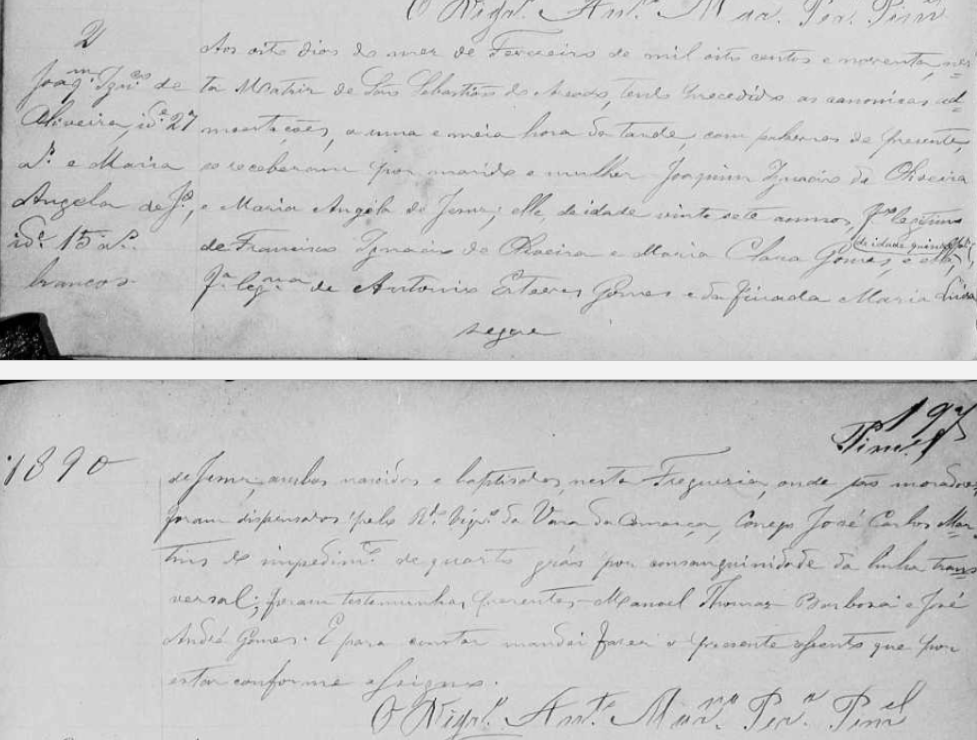 O Vigr.º Ant.º Mar. Per. Pim.el
2
Joaq.m Ign.co de
Oliveira, id.e 27
a.s e Maria
Angela de J.s,
id.e 15 a.s
brancos
Aos oito dias do mez de Fevereiro de mil oito centos e noventa, nes-
ta Matriz de São Sebastião do, tendo precedido as canonicas ad-
moestações, a uma e meia hora da tarde, com palavras de presente,
se receberam por marido e mulher Joaquim Ignacio de Oliveira
e Maria Angela de Jesus; elle, de idade vinte sete annos, f.º legitimo
de Francisco Ignacio de Oliveira e Maria Clara Gomes, e ella,
de idade quinze
f.ª leg.ma de Antonio Esteves Gomes e da finada Maria Luisa
segue
197
Pim.el
1890
de Jesus, ambos nascidos e baptisados, nesta Freguesia, onde são moradores,
foram dispensados pelo R.do Vigr.º da Vara da Comarca, Conego José Carlos Mar-
tins do impedim.to de quarto gráo por consanguinidade da linha trans-
versal; foram testemunhas presentes - Manoel Thomaz Barbosa e José
André Gomes. E para constar mandei fazer o presente assento que por
estar conforme assigno.
O Vigr.º Ant.º Mar.no Per.ª Pim.el